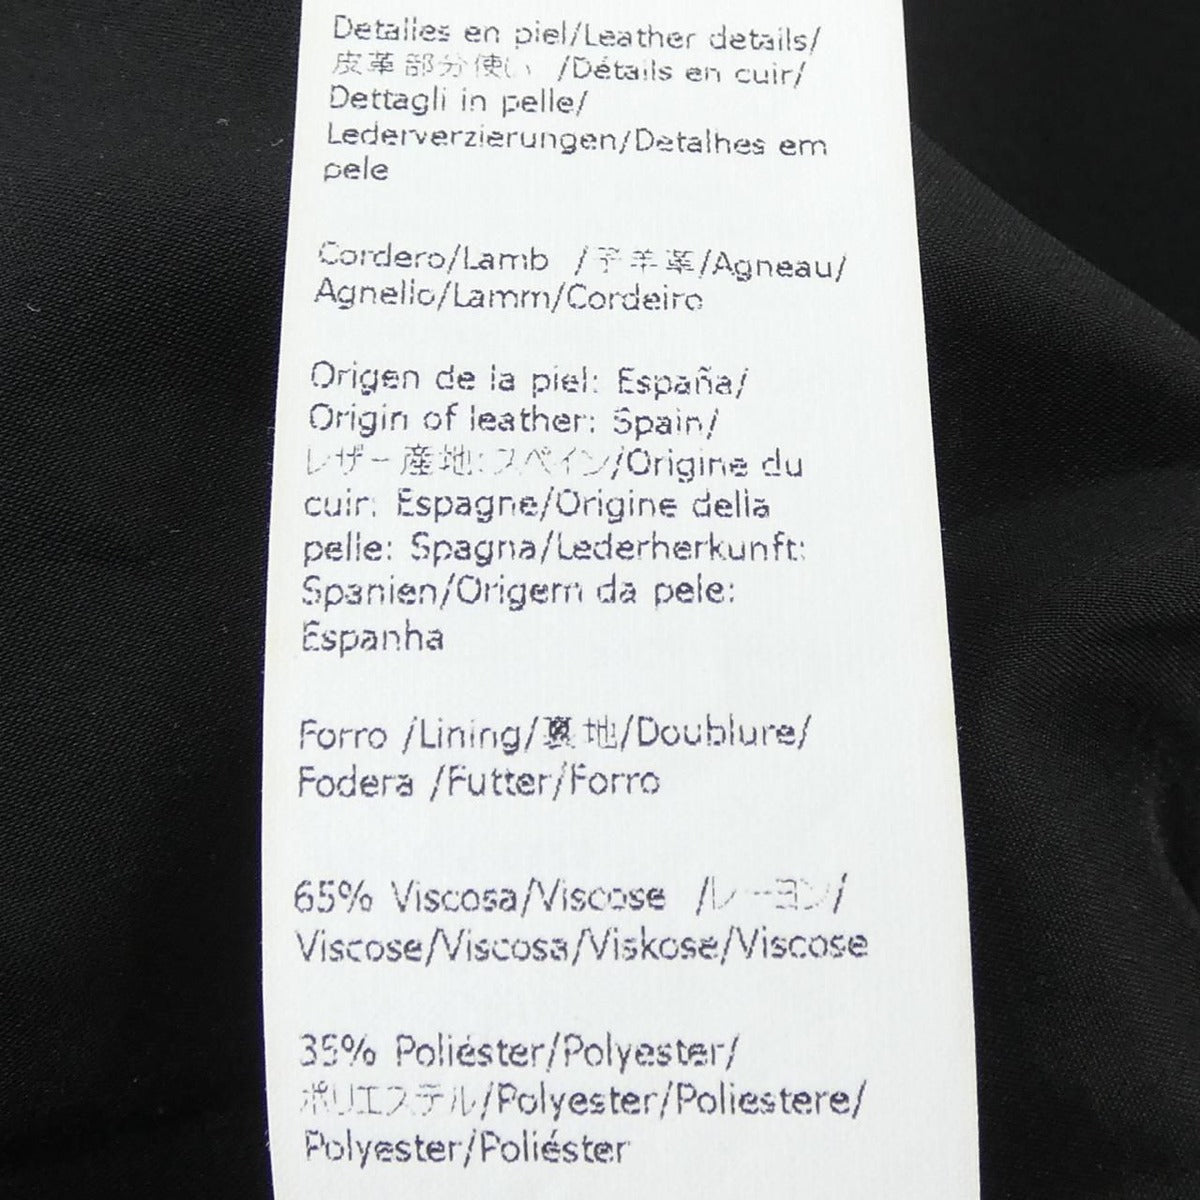 Detalles en piel/Leather details/
皮革部分使い /Détails en cuir/
Dettagli in pelle/
Lederverzierungen/Detalhes em
pele
Cordero/Lamb /子羊革/Agneau/
Agnello/Lamm/Cordeiro
Origen de la piel: España/
Origin of leather: Spain/
レザー産地:スペイン/Origine du
cuir: Espagne/Origine della
pelle: Spagna/Lederherkunft:
Spanien/Origem da pele:
Espanha
Forro /Lining/裏地/Doublure/
Fodera /Futter/Forro
65% Viscosa/Viscose /レーヨン/
Viscose/Viscosa/Viskose/Viscose
35% Poliéster/Polyester/
ポリエステル/Polyester/Poliestere/
Polyester/Poliéster